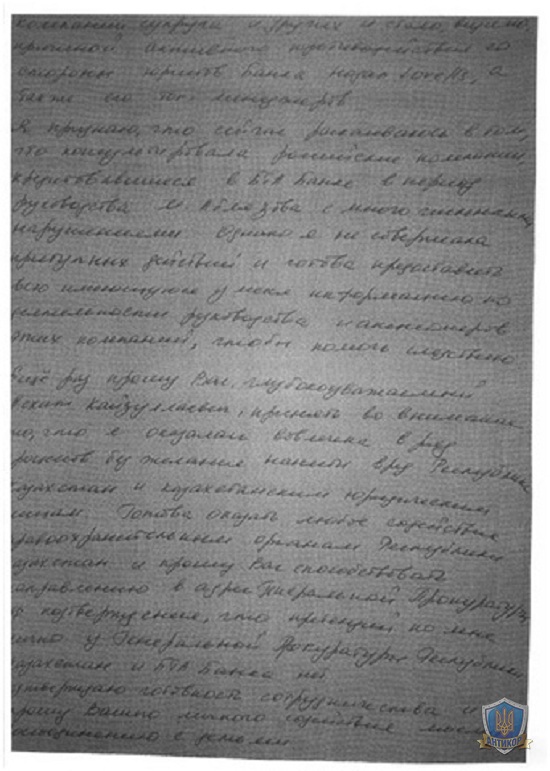 компании супруги и других и стало, видимо,
причиной активного противодействия со
стороны юристов Банка Hogan Lovells, а
также его топ-менеджеров
Я признаю, что сейчас раскаиваюсь в том,
что консультировала российские компании,
кредитовавшиеся в БТА Банке в период
руководства М. Аблязова с многочисленными
нарушениями. Однако я не совершала
преступных действий и готова предоставить
всю имеющуюся у меня информацию по
деятельности руководства и акционеров
этих компаний, чтобы помочь следствию
Ещё раз прошу Вас, глубокоуважаемый
Кайзуллаевич, принять во внимание
то, что я оказалась вовлечена в ряд
без желания нанести вред Республике
Казахстан и казахстанским юридическим
лицам. Готова оказать любое содействие
правоохранительным органам Республики
Казахстан и прошу Вас способствовать
направлению в адрес Генеральной Прокуратуры
подтверждение, что претензий ко мне
лично у Генеральной Прокуратуры Республики
Казахстан и БТА Банка нет
готовность сотрудничества и
прошу Вашего личного содействия
с детьми
АНТИКОР